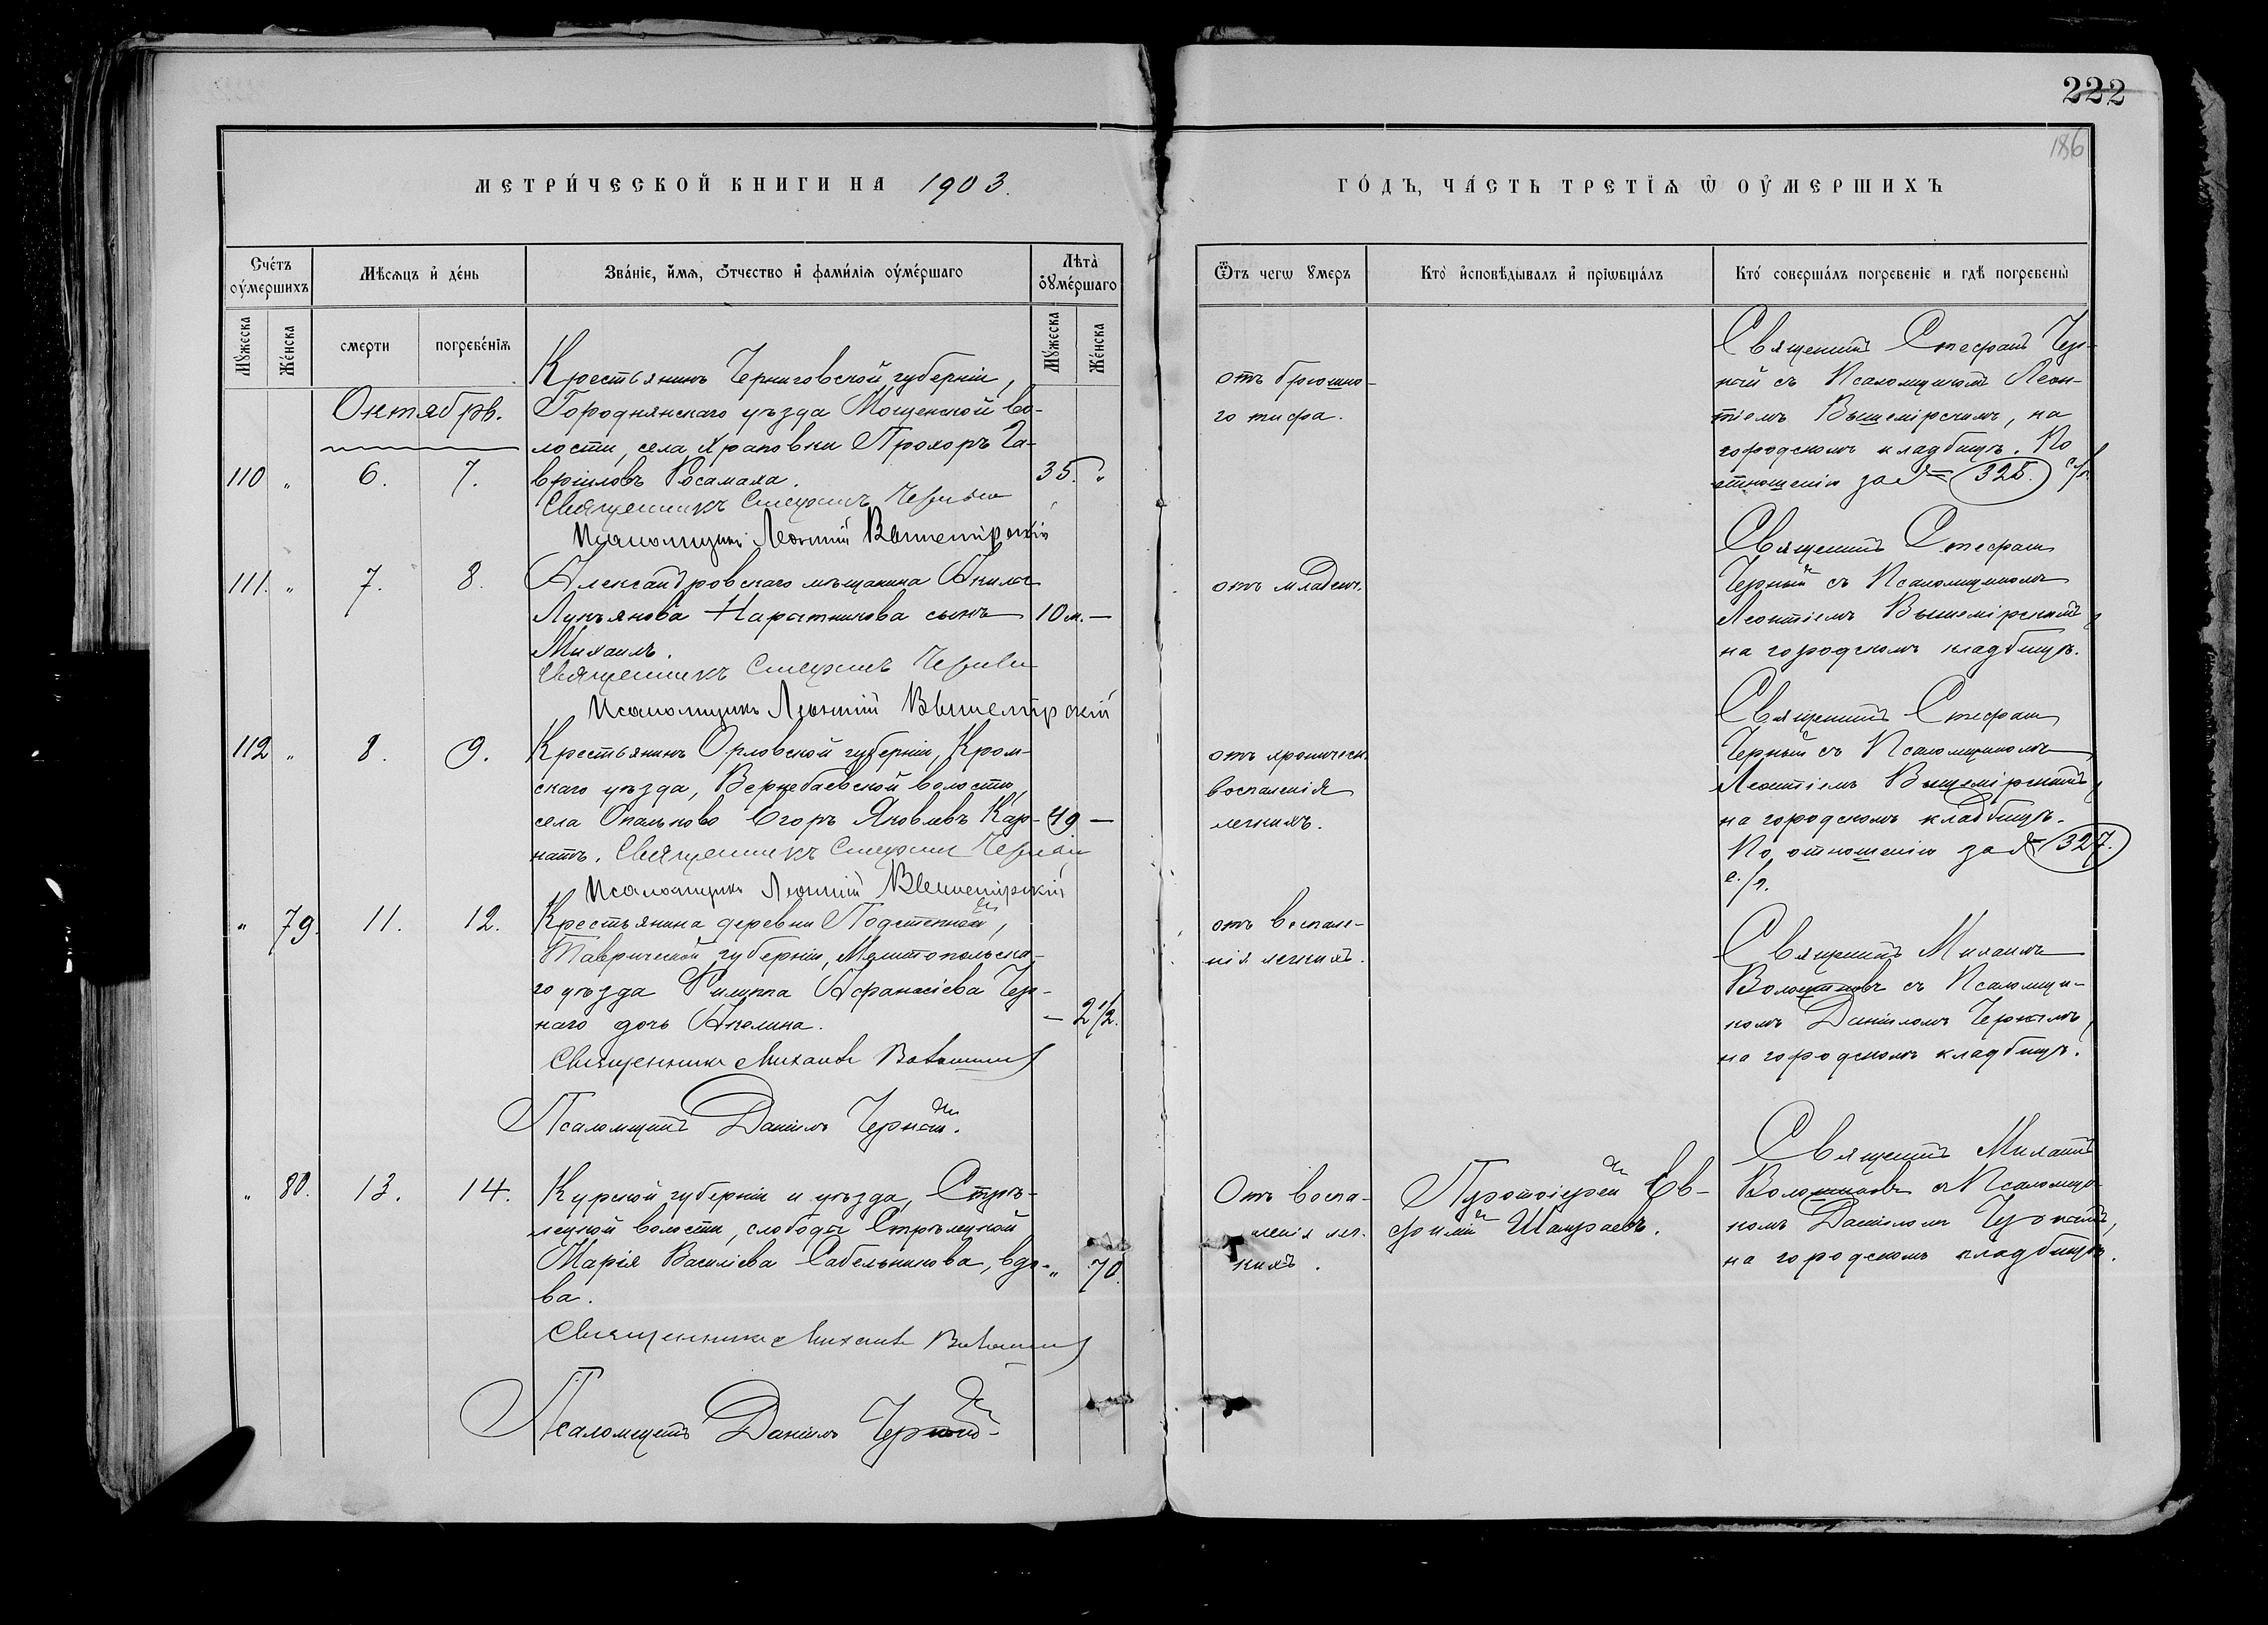 222
186
МЕТРИ́ЧЕСКОЙ КНИГИ НА 1903.
ГО́ДЪ, ЧА́СТЬ ТРЕТІѦ Ѿ ОУ҆́МЕРШИХЪ
Сче́тъ оу҆́мершихъ
Мѣ́сѧцъ и҆ де́нь
Зва́ніе, и҆́мѧ, ѻ҆́тчество и҆ фами́лїѧ оу҆ме́ршаго
Лѣта̀ оу҆ме́ршаго
Ѿ чегѡ ᲂумеръ
Кто̀ и҆сповѣ́дывалъ и҆ прїѡбща́лъ
Кто́ соверша́лъ погребе́нїе и гдѣ̀ погребены̀
Мꙋ́жеска
Же́нска
смерти
погребе́нїѧ
Мꙋ́жеска
Же́нска
Октябрь.
110 „ 6. 7.
Крестьянинъ Черниговской губерніи,
Городнянскаго уѣзда Мощенской во-
лости, села Храповки Прохоръ Га-
вріиловъ Росамаха.
35. „
Священникъ Стефанъ Черный
Псаломщикъ Леонтій Вышемірскій
отъ брюшно-
го тифа.
Священникъ Стефанъ Чер-
ный съ Псаломщикомъ Леон-
тіемъ Вышемірскимъ, на
городскомъ кладбищѣ. По
отношенію за № 325.
111. „ 7. 8.
Александровскаго мѣщанина Акила
Лукьянова Наратникова сынъ
Михаилъ.
10 м. —
Священникъ Стефанъ Черный
Псаломщикъ Леонтій Вышемірскій
отъ младенч.
Священникъ Стефанъ
Черный съ Псаломщикомъ
Леонтіемъ Вышемірскимъ,
на городскомъ кладбищѣ.
112 „ 8. 9.
Крестьянинъ Орловской губерніи, Кром-
скаго уѣзда, Верхебаевской волости,
села Опальково Егоръ Яковлевъ Кар-
натъ.
49 —
Священникъ Стефанъ Черный
Псаломщикъ Леонтій Вышемірскій
отъ хроническ.
воспаленія
легкихъ.
Священникъ Стефанъ
Черный съ Псаломщикомъ
Леонтіемъ Вышемірскимъ,
на городскомъ кладбищѣ.
По отношенію за № 327.
„ 79. 11. 12.
Крестьянина деревни Подстепной,
Таврической губерніи, Мелитопольска-
го уѣзда Филиппа Афанасіева Чер-
наго дочь Акелина.
— 2 1/2.
Священникъ Михаилъ Волошинов
Псаломщикъ Даніилъ Черный.
отъ воспале-
нія легкихъ.
Священникъ Михаилъ
Волошиновъ съ Псаломщи-
комъ Даніиломъ Чернымъ,
на городскомъ кладбищѣ.
„ 80. 13. 14.
Курской губерніи и уѣзда, Стрѣ-
лецкой волости, слободы Стрѣлецкой
Марія Василіева Сабельникова, вдо-
ва.
„ 70.
Священникъ Михаилъ Волошинов
Псаломщикъ Даніилъ Черный
Отъ воспа-
ленія лег-
кихъ.
Протоіерей Ев-
фимій Шамраевъ.
Священникъ Михаилъ
Волошиновъ съ Псаломщи-
комъ Даніиломъ Чернымъ,
на городскомъ кладбищѣ.